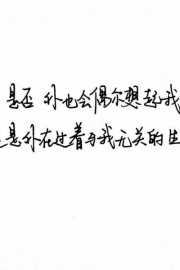 是否 你也会偶尔想起我
是你在过着与我无关的生